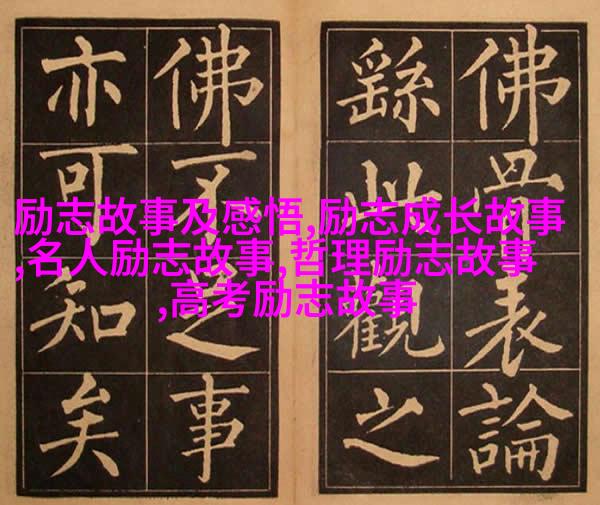 佛骨表論
繇此觀之
佛不足事
亦可知矣
励志故事及感悟,励志成长故事
,名人励志故事,哲理励志故事
,高考励志故事